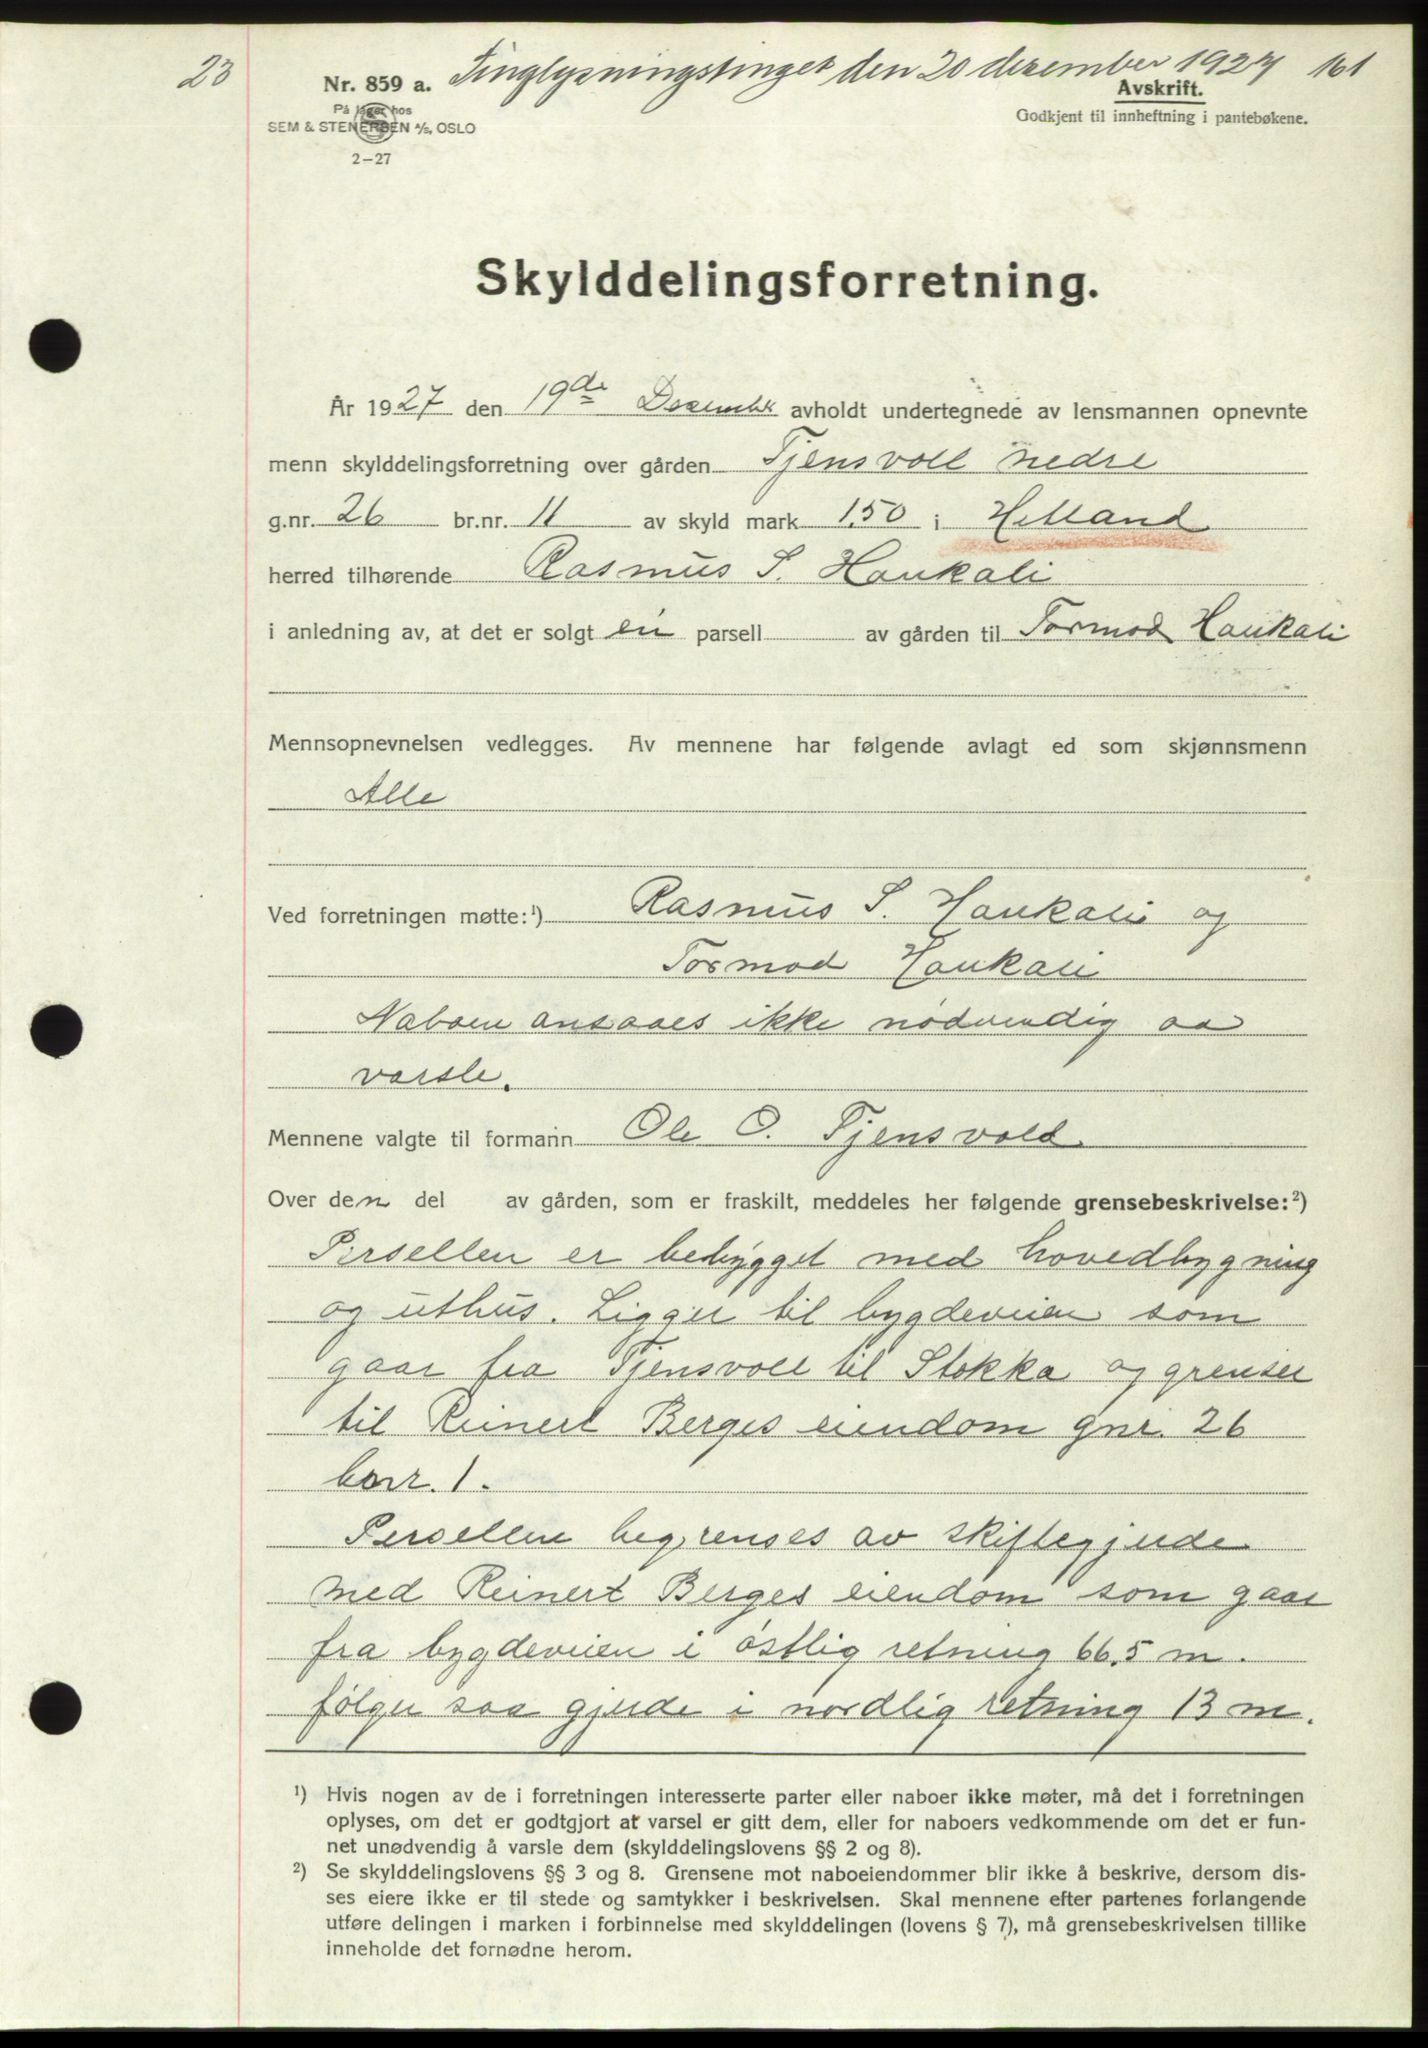 23
Tinglysningstinget den 20 dezember 1927 161
Nr. 859 a.
På lager hos
SEM & STENERSEN A/S, OSLO
2-27
Avskrift.
Godkjent til innheftning i pantebøkene.
Skylddelingsforretning.
År 1927 den 19de Dezember avholdt undertegnede av lensmannen opnevnte
menn skylddelingsforretning over gården Tjensvoll nedre
g.nr. 26 br.nr. 11 av skyld mark 1,50 i Hetland
herred tilhørende Rasmus S. Haukali
i anledning av, at det er solgt en parsell av gården til Tormod Haukali
Mennsopnevnelsen vedlegges. Av mennene har følgende avlagt ed som skjønnsmenn
Alle
Ved forretningen møtte:¹) Rasmus S. Haukali og
Tormod Haukali
Naboen ansaaes ikke nødvendig aa
varsle.
Mennene valgte til formann Ole O. Tjensvold
Over den del av gården, som er fraskilt, meddeles her følgende grensebeskrivelse:²)
Persellen er bebygget med hovedbygning
og uthus. Ligger til bygdeveien som
gaar fra Tjensvoll til Stokka og grenser
til Reinert Berges eiendom gnr. 26
bnr. 1.
Persellen begrenses av skiftegjerde
med Reinert Berges eiendom som gaar
fra bygdeveien i østlig retning 66,5 m.
følger saa gjerde i nordlig retning 13 m.
¹) Hvis nogen av de i forretningen interesserte parter eller naboer ikke møter, må det i forretningen
oplyses, om det er godtgjort at varsel er gitt dem, eller for naboers vedkommende om det er fun-
net unødvendig å varsle dem (skylddelingslovens §§ 2 og 8).
²) Se skylddelingslovens §§ 3 og 8. Grensene mot naboeiendommer blir ikke å beskrive, dersom dis-
ses eiere ikke er til stede og samtykker i beskrivelsen. Skal mennene efter partenes forlangende
utføre delingen i marken i forbinnelse med skylddelingen (lovens § 7), må grensebeskrivelsen tillike
inneholde det fornødne herom.